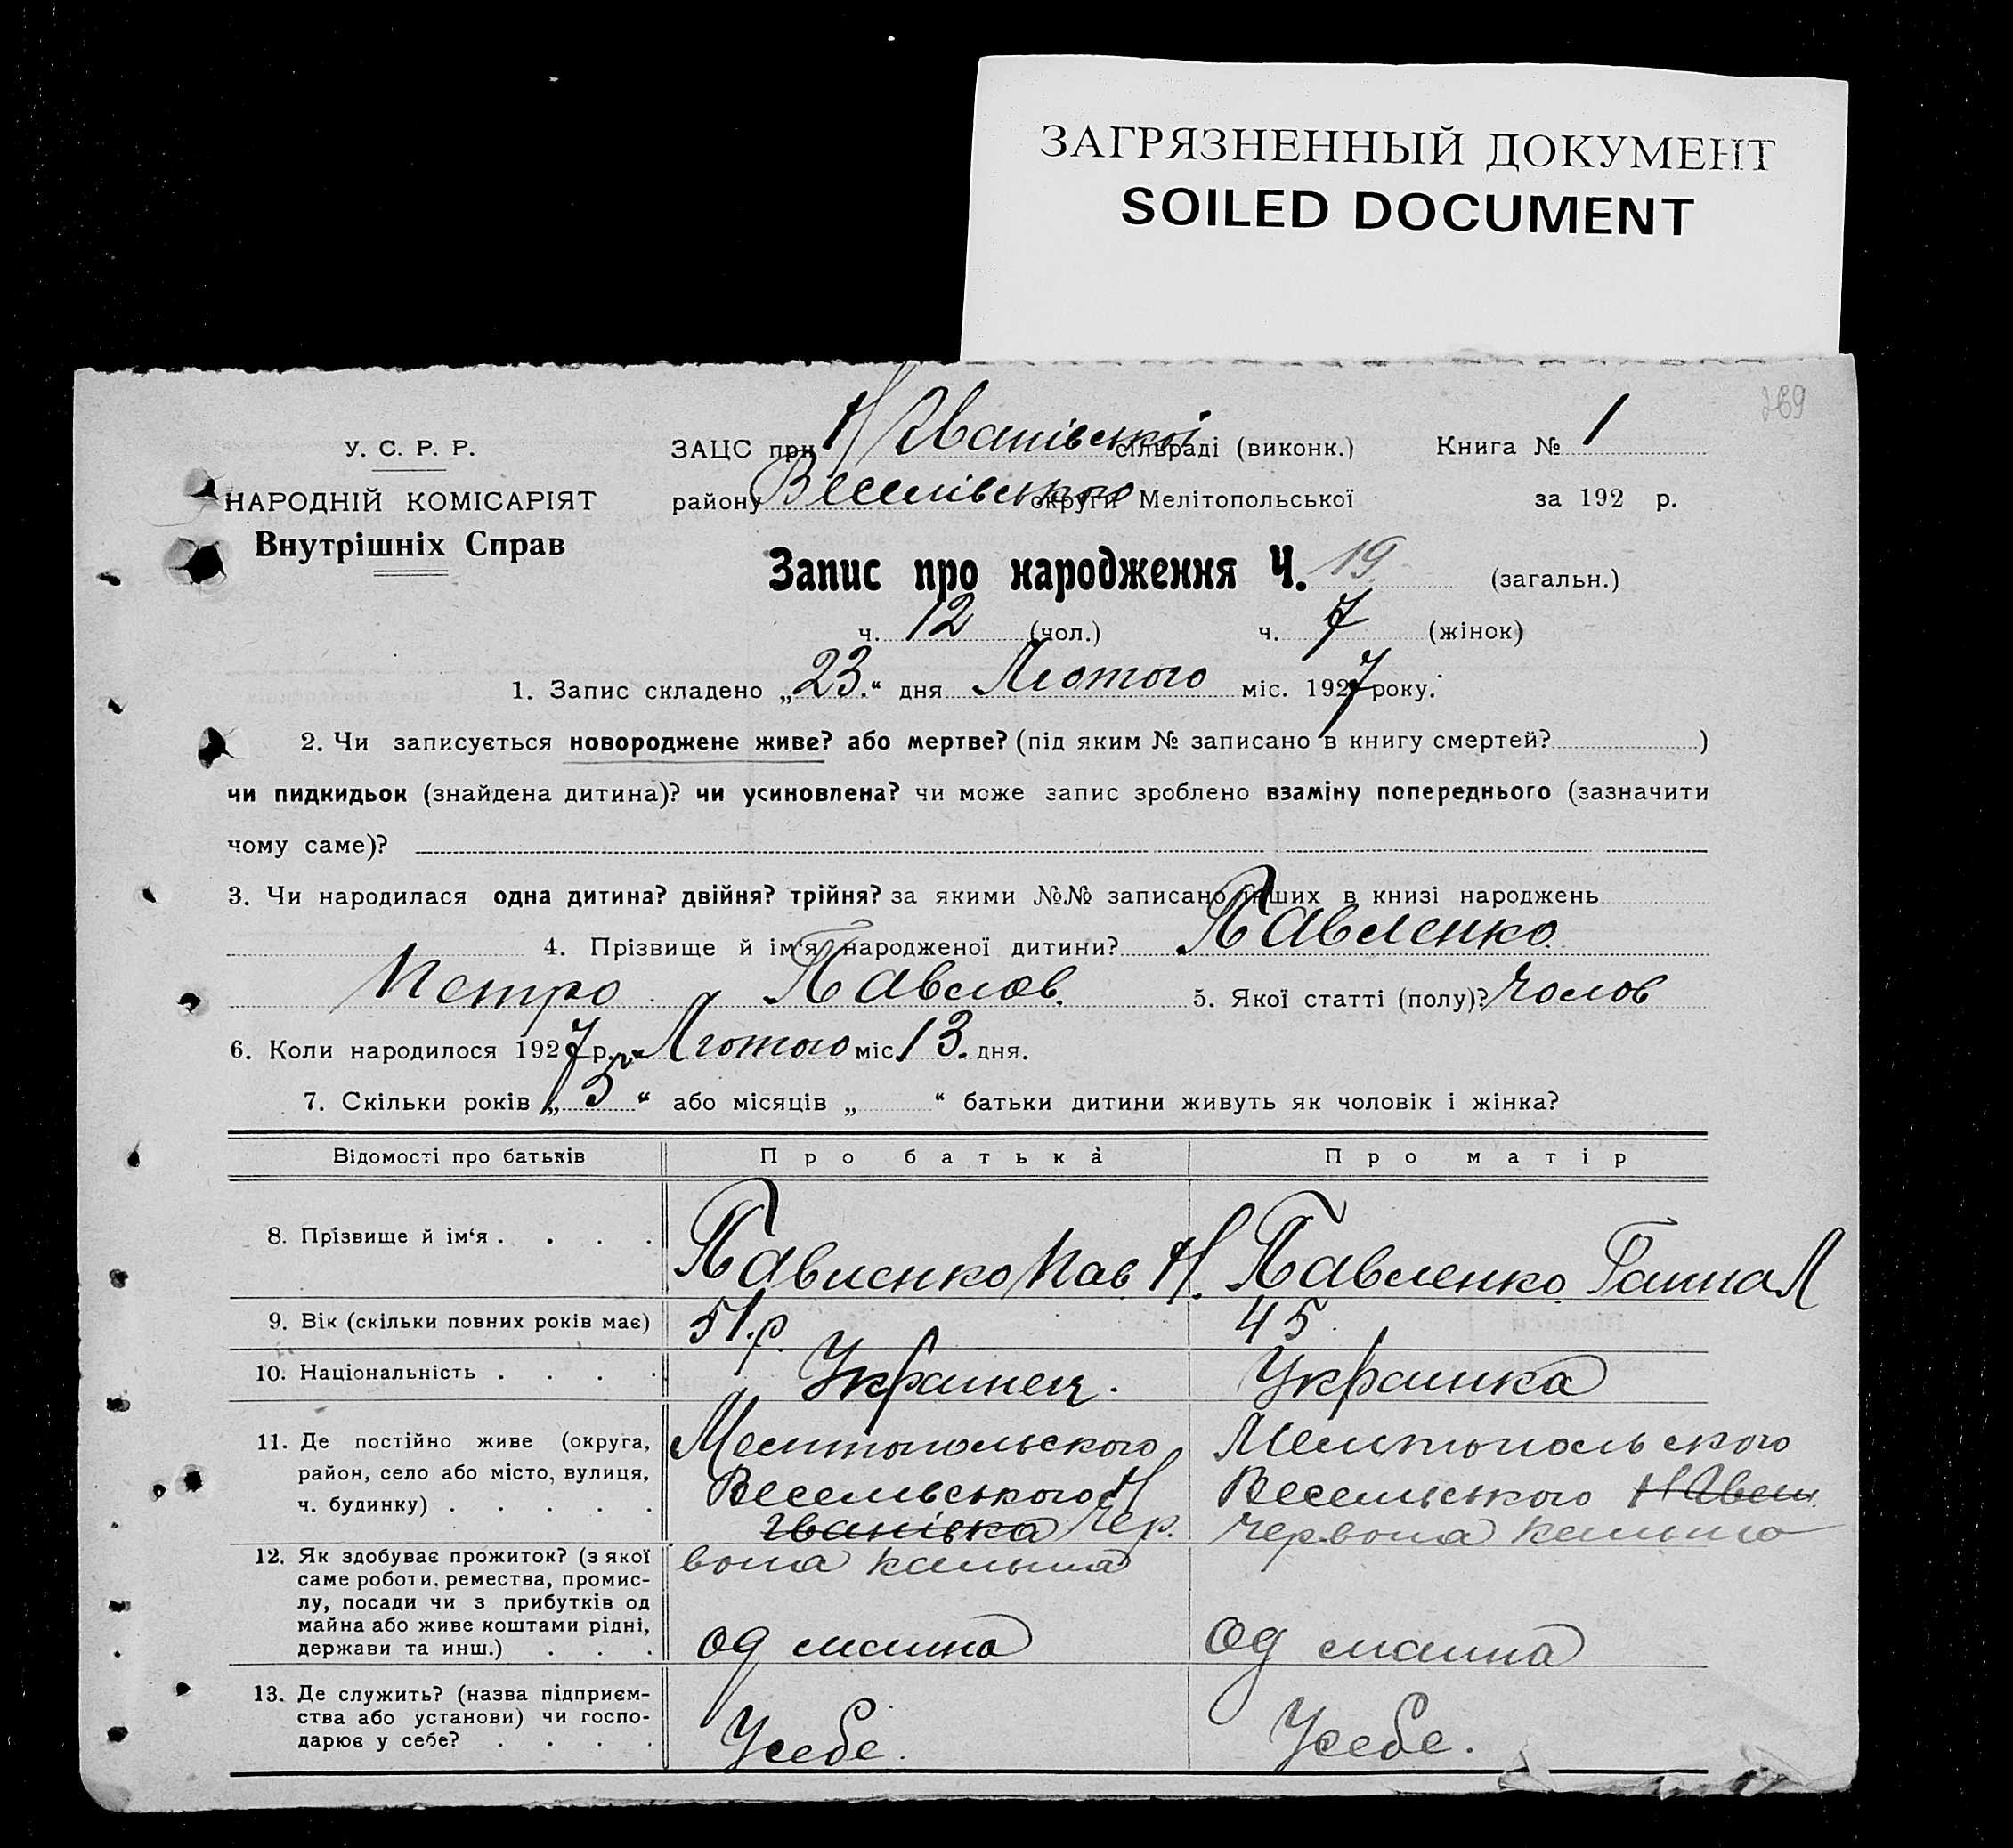 ЗАГРЯЗНЕННЫЙ ДОКУМЕНТ
SOILED DOCUMENT
369
У. С. Р. Р.
НАРОДНІЙ КОМІСАРІЯТ
Внутрішніх Справ
ЗАЦС при Н/Іванівській сільраді (виконк.) Книга № 1
району Веселівського округи Мелітопольської за 192 р.
Запис про народження Ч. 19. (загальн.)
ч. 12 (чол.) ч. 7 (жінок)
1. Запис складено „23.“ дня Лютого міс. 1927 року.
2. Чи записується новороджене живе? або мертве? (під яким № записано в книгу смертей? )
чи пидкидьок (знайдена дитина)? чи усиновлена? чи може запис зроблено взаміну попереднього (зазначити
чому саме)?
3. Чи народилася одна дитина? двійня? трійня? за якими №№ записано інших в книзі народжень
4. Прізвище й ім‘я народженої дитини? Павленко
Петро Павлов. 5. Якої статті (полу)? Чолов
6. Коли народилося 1927 р. Лютого міс. 13. дня.
7. Скільки років „ “ або місяців „ “ батьки дитини живуть як чоловік і жінка?
Відомості про батьків Про батька Про матір
8. Прізвище й ім‘я . . . . Павленко Пав. Н. Павленко Ганна Л
9. Вік (скільки повних років має) 51.р. 45.
10. Національність . . . . Украинец. Украинка
11. Де постійно живе (округа, Мелитопольского Мелитопольского
район, село або місто, вулиця, Веселивського Н Веселивського Н Иван
ч. будинку) . . . . . Іванівка Чер. Червона калина
12. Як здобуває прожиток? (з якої вона калина
саме роботи, ремества, промис-
лу, посади чи з прибутків од
майна або живе коштами рідні,
держави та инш.) . . . од маина од маина
13. Де служить? (назва підприєм-
ства або установи) чи госпо-
дарює у себе? . . . . У себе. У себе.